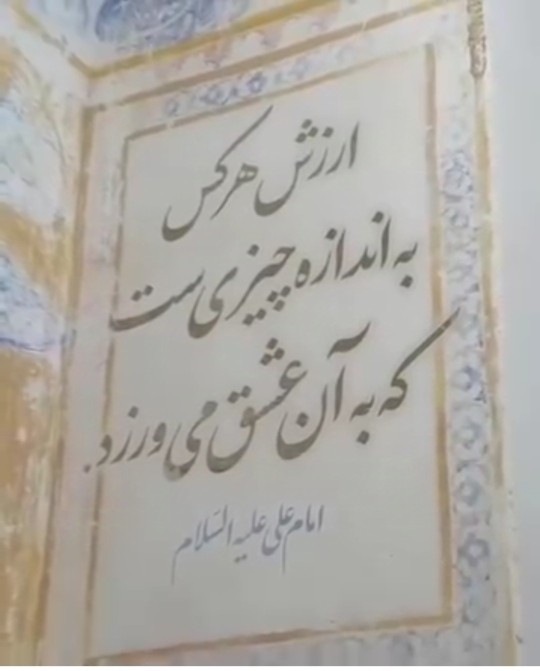 ارزش هرکس
به اندازه چیزی ست
که به آن عشق می ورزد.
امام علی علیه السّلام